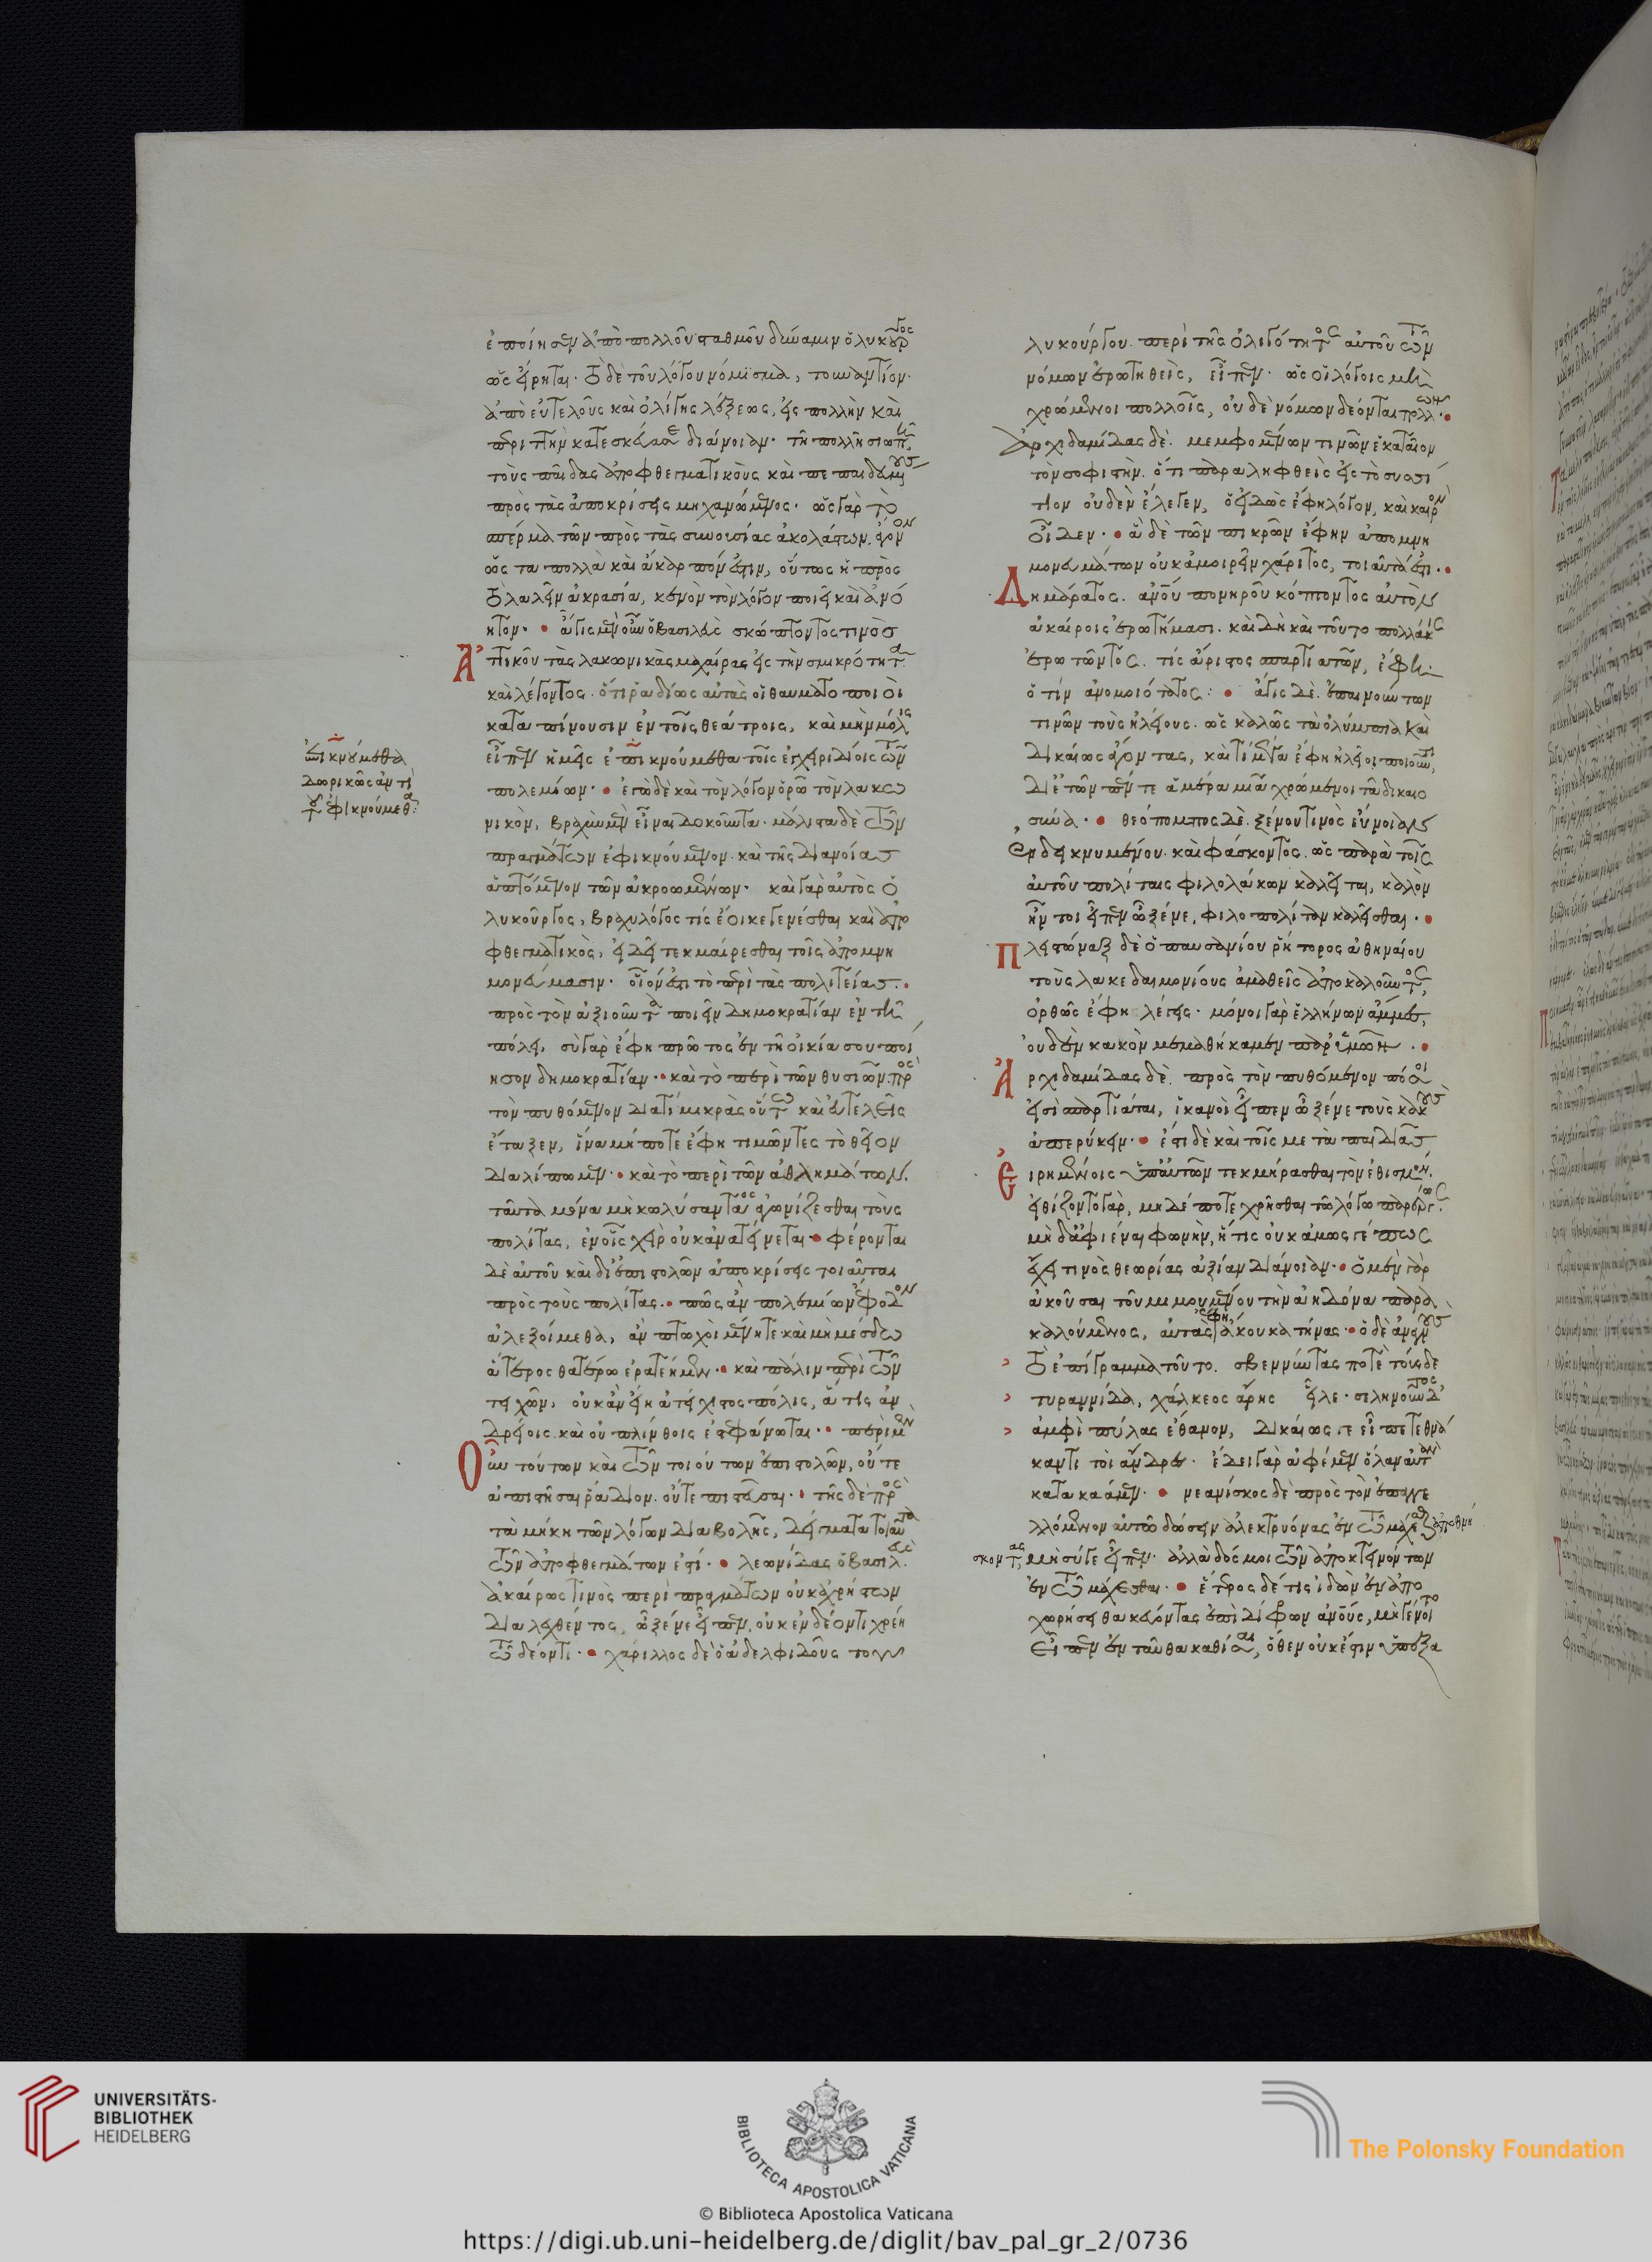 ἐποίησεν ἀπὸ πολλοῦ σταθμοῦ δύναμιν ὁ λυκοῦργος
ὡς εἴρηται· τὸ δὲ τοῦ λόγου νόμισμα, τουναντίον·
ἀπὸ εὐτελοῦς καὶ ὀλίγης λέξεως, εἰς πολλὴν καὶ
περιττὴν κατεσκεύασε διάνοιαν· τῆ πολλῆ σιωπῆ
τοὺς παῖδας ἀποφθεγματικοὺς καὶ πεπαιδευμένους
πρὸς τὰς ἀποκρίσεις μηχανώμενος· ὡς γὰρ τὸ
σπέρμα τῶν πρὸς τὰς συνουσίας ἀκολάστων, ἄγονον
ὡς τα πολλὰ καὶ ἄκαρπόν ἐστιν, οὕτως ἡ πρὸς
τὸ λαλεῖν ἀκρασία, κενὸν τὸν λόγον ποιεῖ καὶ ἀνό
ητον· ἆγις μὲν οὖν ὁ βασιλεὺς σκώπτοντος τινὸς
Ἀττικοῦ τὰς λακωνικὰς μαχαίρας εἰς τὴν σμικρότητα
καὶ λέγοντος· ὅτι ῥαδίως αὐτὰς οἱ θαυματοποιοὶ
καταπίνουσιν ἐν τοῖς θεάτροις, καὶ μὴν μάλις
εἶπεν ἡμεῖς ἐπικνούμεθα τοῖς ἐγχειριδίοις τῶν
πολεμίων· ἐγὼ δὲ καὶ τὸν λόγον ὁρῶ τὸν λακω
νικὸν, βραχὺν μὲν εἶναι δοκοῦντα· μάλιστα δὲ τῶν
πραγμάτων ἐφικνούμενον· καὶ τῆς διανοίας
ἁπτόμενον τῶν ἀκροωμένων· καὶ γὰρ αὐτὸς ὁ
λυκοῦργος, βραχυλόγος τίς ἔοικε γενέσθαι καὶ ἀπο
φθεγματικὸς, εἰ δεῖ τεκμαίρεσθαι τοῖς ἀπομνη
μονεύμασιν· οἷον ἐστι τὸ περὶ τὰς πολιτείας.
πρὸς τὸν ἀξιοῦντα ποιεῖν δημοκρατίαν ἐν τῆ
πόλει, σὺ γὰρ ἔφη πρῶτος ἐν τῆ οἰκία σου ποί
ησον δημοκρατίαν· καὶ τὸ περὶ τῶν θυσιῶν· πρὸς
τὸν πυθόμενον διατί μικρὰς οὕτω καὶ εὐτελεῖς
ἔταξεν, ἵνα μή ποτε ἔφη τιμῶντες τὸ θεῖον
διαλίπωμεν· καὶ τὸ περὶ τῶν ἀθλημάτων.
ταῦτα μόνα μὴ κωλύσαντος ἀγωνίζεσθαι τοὺς
πολίτας, ἐν οἷς χεὶρ οὐκ ἀνατείνεται· φέρονται
δὲ αὐτοῦ καὶ δι' ἐπιστολῶν ἀποκρίσεις τοιαῦται
πρὸς τοὺς πολίτας. πῶς ἂν πολεμίων ἔφοδον
ἀλεξοίμεθα, ἂν πτωχοὶ μένητε καὶ μὴ μέσδω
ἅτερος θατέρω ἐρατεῖ ἦμεν· καὶ πάλιν περὶ τῶν
τειχῶν, οὐκ ἂν εἴη ἀτείχιστος πόλις, ἅ τις ἀν
δρείοις καὶ οὐ πλίνθοις ἐστεφάνωται· περὶ μὲν
Οὖν τούτων καὶ τῶν τοιούτων ἐπιστολῶν, οὔτε
ἀπιστῆσαι ῥάδιον. οὔτε πιστεῦσαι· τῆς δὲ πρὸς
τὰ μήκη τῶν λόγων διαβολῆς, δείγματα τοιαῦτα
τῶν ἀποφθεγμάτων ἐστί· λεωνίδας ὁ βασιλεὺς
ἀκαίρως τινὸς περὶ πραγμάτων οὐκ ἀχρήστων
διαλεχθέντος, ὦ ξένε εἶπεν, οὐκ ἐν δέοντι χρέη
τῶ δέοντι· χάριλλος δὲ ὁ ἀδελφιδοῦς τοῦ
ἐπικνούμεθα
δωρικῶς ἀντὶ
τοῦ ἐφικνούμεθα:
λυκούργου· περὶ τῆς ὀλιγότητος αὐτοῦ τῶν
νόμων ἐρωτηθεὶς, εἶπεν· ὡς οἱ λόγοις μὴ
χρώμενοι πολλοῖς, οὐδὲ νόμων δέονται πολλῶν·
Ἀρχιδαμίδας δὲ· μεμφομένων τινῶν ἑκαταῖον
τὸν σοφιστὴν· ὅτι παραληφθεὶς εἰς τὸ συσσί
τιον οὐδὲν ἔλεγεν, ὁ εἰδὼς ἔφη λόγον, καὶ καιρὸν
οἶδεν· ἃ δὲ τῶν πικρῶν ἔφην ἀπομνη
μονευμάτων οὐκ ἀμοιρεῖν χάριτος, τοιαῦτά ἐστι·
Δημάρατος· ἀνοῦ πονηροῦ κόπτοντος αὐτὸν
ἀκαίροις ἐρωτήμασι· καὶ δὴ καὶ τοῦτο πολλάκις
ἐρωτῶντος· τίς ἄριστος σπαρτιατῶν, ἔφη·
ὁ τὶν ἀνομοιότατος: ἆγις δὲ· ἐπαινούντων
τινῶν τοὺς ἠλείους· ὡς καλῶς τὰ ὀλύμπια καὶ
δικαίως ἄγοντας, καὶ τί μέγα ἔφη ἠλεῖοι ποιοῦντι,
δι' ἐτῶν πέντε ἁμέρα μιᾶ χρώμενοι τᾶ δικαιο
σύνα· θεόπομπος δὲ· ξένου τινὸς εὔνοιαν
ἐνδεικνυμένου· καὶ φάσκοντος· ὡς παρὰ τοῖς
αὐτοῦ πολίταις φιλολάκων καλεῖται, κάλλιον
ἦν τοι εἶπεν ὦ ξένε, φιλοπολίταν καλεῖσθαι·
Πλειστώναξ δὲ ὁ παυσανίου ῥήτορος ἀθηναίου
τοὺς λακεδαιμονίους ἀμαθεῖς ἀποκαλοῦντος,
ὀρθῶς ἔφη λέγεις· μόνοι γὰρ ἑλλήνων ἄμμες,
οὐδὲν κακὸν μεμαθήκαμεν παρ' ὑμῶν·
Ἀρχιδαμίδας δὲ· πρὸς τὸν πυθόμενον πόσοι
εἰσὶ σπαρτιάται, ἱκανοὶ εἶπεν ὦ ξένε τοὺς κακοὺς
ἀπερύκειν· ἔστι δὲ καὶ τοῖς μετὰ παιδιᾶς
Εἰρημένοις ὑπ' αὐτῶν τεκμήρασθαι τὸν ἐθισμόν.
εἰθίζοντο γὰρ, μηδέ ποτε χρῆσθαι τῶ λόγω παρέργως.
μὴ δ' ἀφιέναι φωνὴν, ἥ τις οὐκ ἁμωσγέπως
εἶχε τινὸς θεωρίας ἀξίαν διάνοιαν· ὁ μὲν γὰρ
ἀκοῦσαι τοῦ μιμουμένου τὴν ἀηδόνα παρα
καλούμενος, αὐτᾶς ἔφη, ἄκουκα τήνας· ὁ δὲ ἀναγνοὺς
τὸ ἐπίγραμμα τοῦτο· σβεννύντας ποτὲ τούσδε
τυραννίδα, χάλκεος ἄρης εἷλε· σελινοῦντος δ'
ἀμφὶ πύλας ἔθανον, δικαίως γε εἶπε τεθνά
καντι τοὶ ἄνδρες· ἔδει γὰρ ἀφέμεν ὅλαν αὐτὰν
κατακαάμεν· νεανίσκος δὲ πρὸς τὸν ἐπαγγε
λλόμενον αὐτῶ δώσειν ἀλεκτρυόνας ἐν τῶ μάχεσθαι ἀποθνή
σκοντας, μὴ σύγε εἶπεν· ἀλλὰ δός μοι τῶν ἀποκτεινόντων
ἐν τῶ μάχεσθαι· ἕτερος δέ τις ἰδὼν ἐν ἀπο
χωρήσει θακεύοντας ἐπὶ δίφρων ἀνοὺς, μὴ γένοιτο
εἶπεν ἐνταῦθα καθίσαι, ὅθεν οὐκ ἔστιν ὑπεξα
UNIVERSITÄTS-
BIBLIOTHEK
HEIDELBERG
BIBLIOTECA APOSTOLICA VATICANA
The Polonsky Foundation
© Biblioteca Apostolica Vaticana
https://digi.ub.uni-heidelberg.de/diglit/bav_pal_gr_2/0736